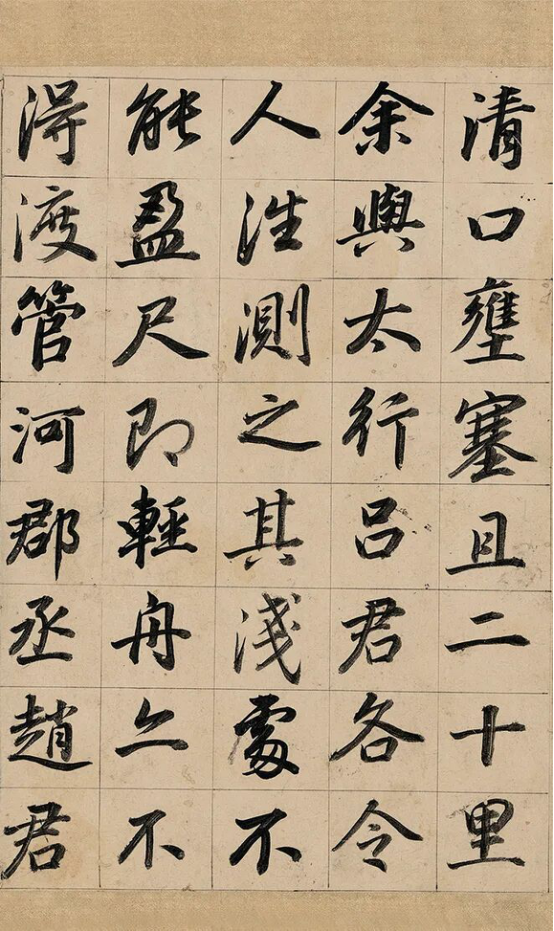 清口壅塞且二十里
余與太行呂君各令
人往測之其淺處不
能盈尺即輕舟亦不
得渡管河郡丞趙君